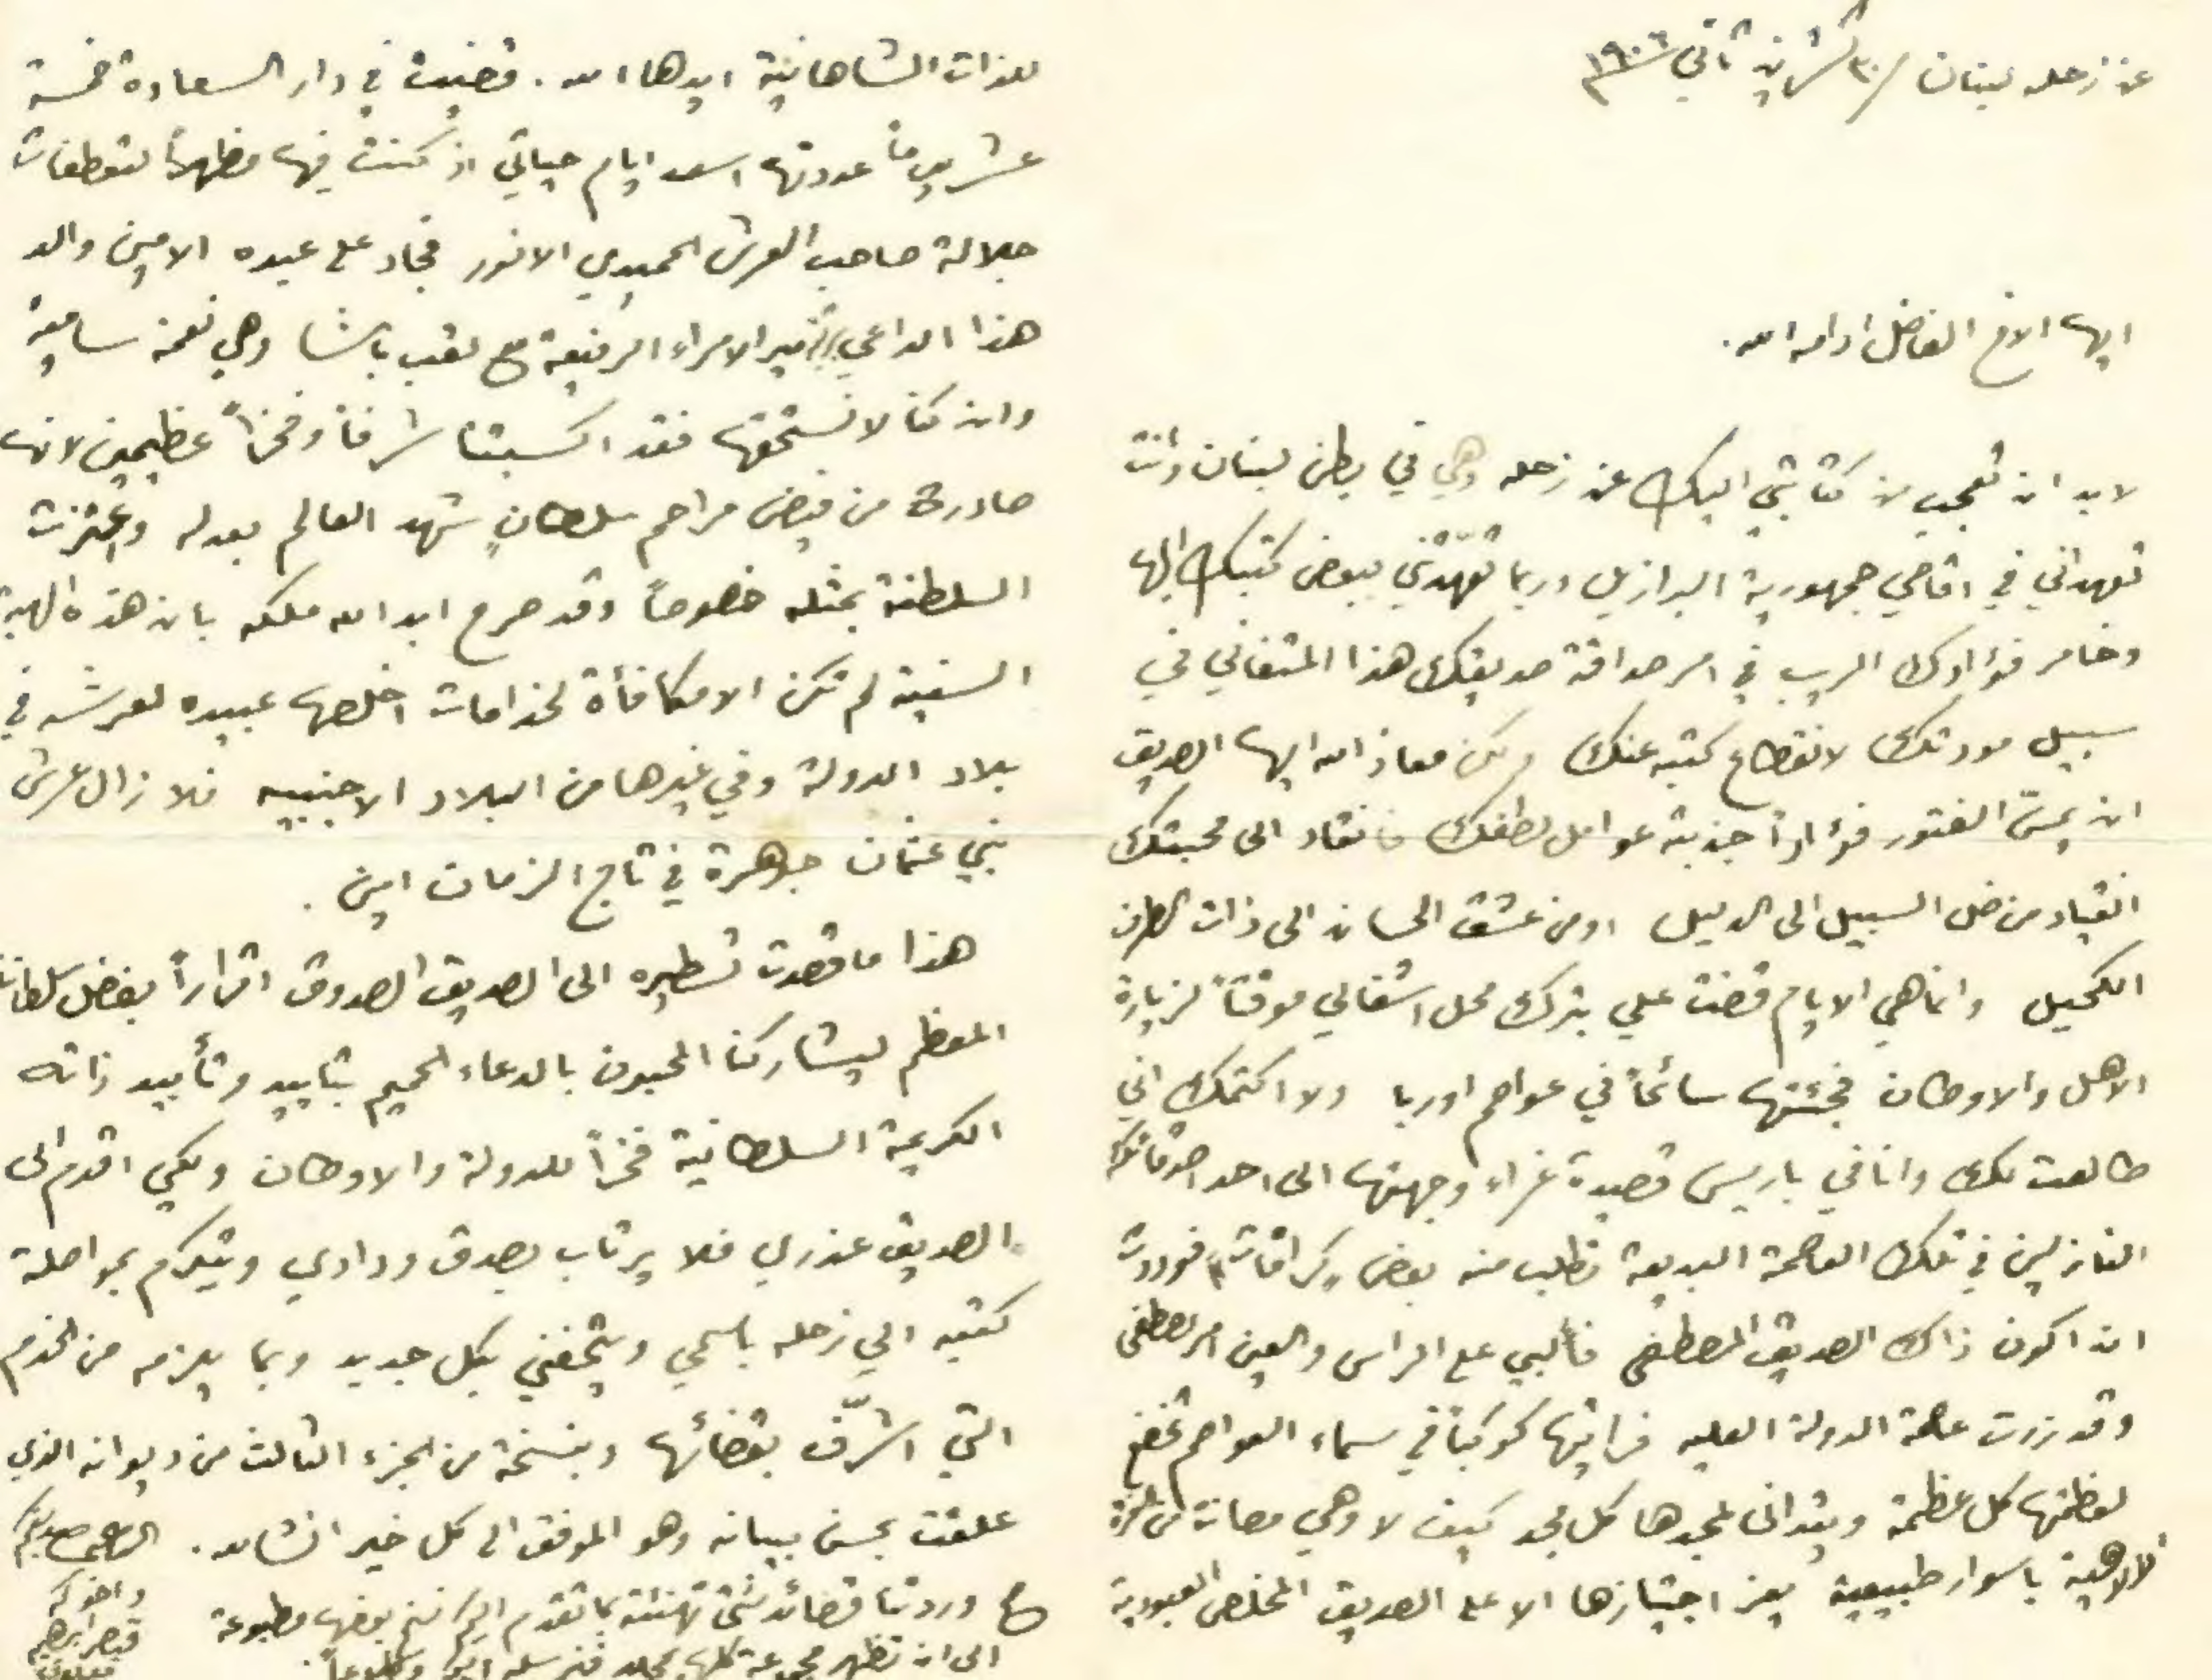 عن زحله لبنان ٣٠ تشرين ثاني سنة ١٩٠٦
ايها الاخ الفاضل ادامه الله.
لا بد ان تعجب من كتابتي اليك عن زحله وهي في بطن لبنان وانت
تعهدني في اقاصي جمهورية البرازيل وربما تعهّدتني ببعض كتبك اليها
وخامر فؤادك الريب في امر صداقة صديقك هذا المتفاني في
سبيل مودتك لانقطاع كتبه عنك ولكن معاذ الله ايها الصديق
ان يمسّ الفتور فؤاداً جذبته عوامل لطفك فانقاد الى محبتك
انقياد من ضل السبيل الى الدليل او من عشق الحسان الى ذات الطرف
الكحيل وانما هي الايام قضت علي بترك محل اشغالي موقتاً لزيارة
الاهل والاوطان فجئتها سائحاً في عواصم اوربا ولا اكتمك اني
طالعت لك وانا في باريس قصيدة غراء وجهتها الى احد اصدقائك
النازلين في تلك العاصمة البديعة تطلب منه بعض كرافات فوددت
ان اكون ذاك الصديق المصطفى فألبي على الراس والعين امر مصطفى
وقد زرت عاصمة الدولة العليه فرايتها كوكباً في سماء العواصم تخضع
لعظمتها كل عظمة ويتدانى لمجدها كل مجد كيف لا وهي مصانة من
الالاهية باسوار طبيعية يعز اجتيازها الا على الصديق المخلص العبودية
للذات الشاهانية ايدها الله. قضيت في دار السعادة خمسة
عشر يوماً عددتها اسعد ايام حياتي اذ كنت فيها مظهراً لتعطفات
جلالة صاحب العرش الحميدي الانور فجاد على عبده الامين والد
هذا الداعي برتبة مير الامراء الرفيعة مع لقب باشا وهي نعمة سامية
وان كنا لا نستحقها فقد اكسبتنا شرفاً وفخراً عظيمين لانها
صادرة من فيض مراحم سلطانٍ شهد العالم بعدله واعتزت
السلطنة بمثله خصوصاً وقد صرح ايد الله ملكه بان هذه الهبة
السنية لم تكن الا مكافأة لخدامات اخلصها عبيده لعرشه في
بلاد الدولة وفي غيرها من البلاد الاجنبيه فلا زال عرش
بني عثمان جوهرة في تاج الزمان امين.
هذا ما قصدت تسطيره الى الصديق الصدوق اقراراً بفضل سلطاننا
المعظم ليشاركنا المحبون بالدعاء الحميم بتاييد وتأبيد ذاته
الكريمة السلطانية فخراً للدولة والاوطان ولكي اقدم الى
الصديق عذري فلا يرتاب بصدق ودادي ويتكرم بمواصلة
كتبه الي زحله باسمي ويتحفني بكل جديد وبما يلزمه من الخدم
التي اتشرّف بقضائها وبنسخة من الجزء الثالث من ديوانه الذي
علقت بحسن بيانه وهو الموفق الى كل خير انشالله. الداعي صديقكم
واخوكم
قيصر ابراهيم
معلوف
ح وردتنا قصائد شتى تهنئة بما تقدم اليكم نسخ بعضها مطبوعة
الى ان تظهر مجموعة كلها بمجلد فنرسله اليكم